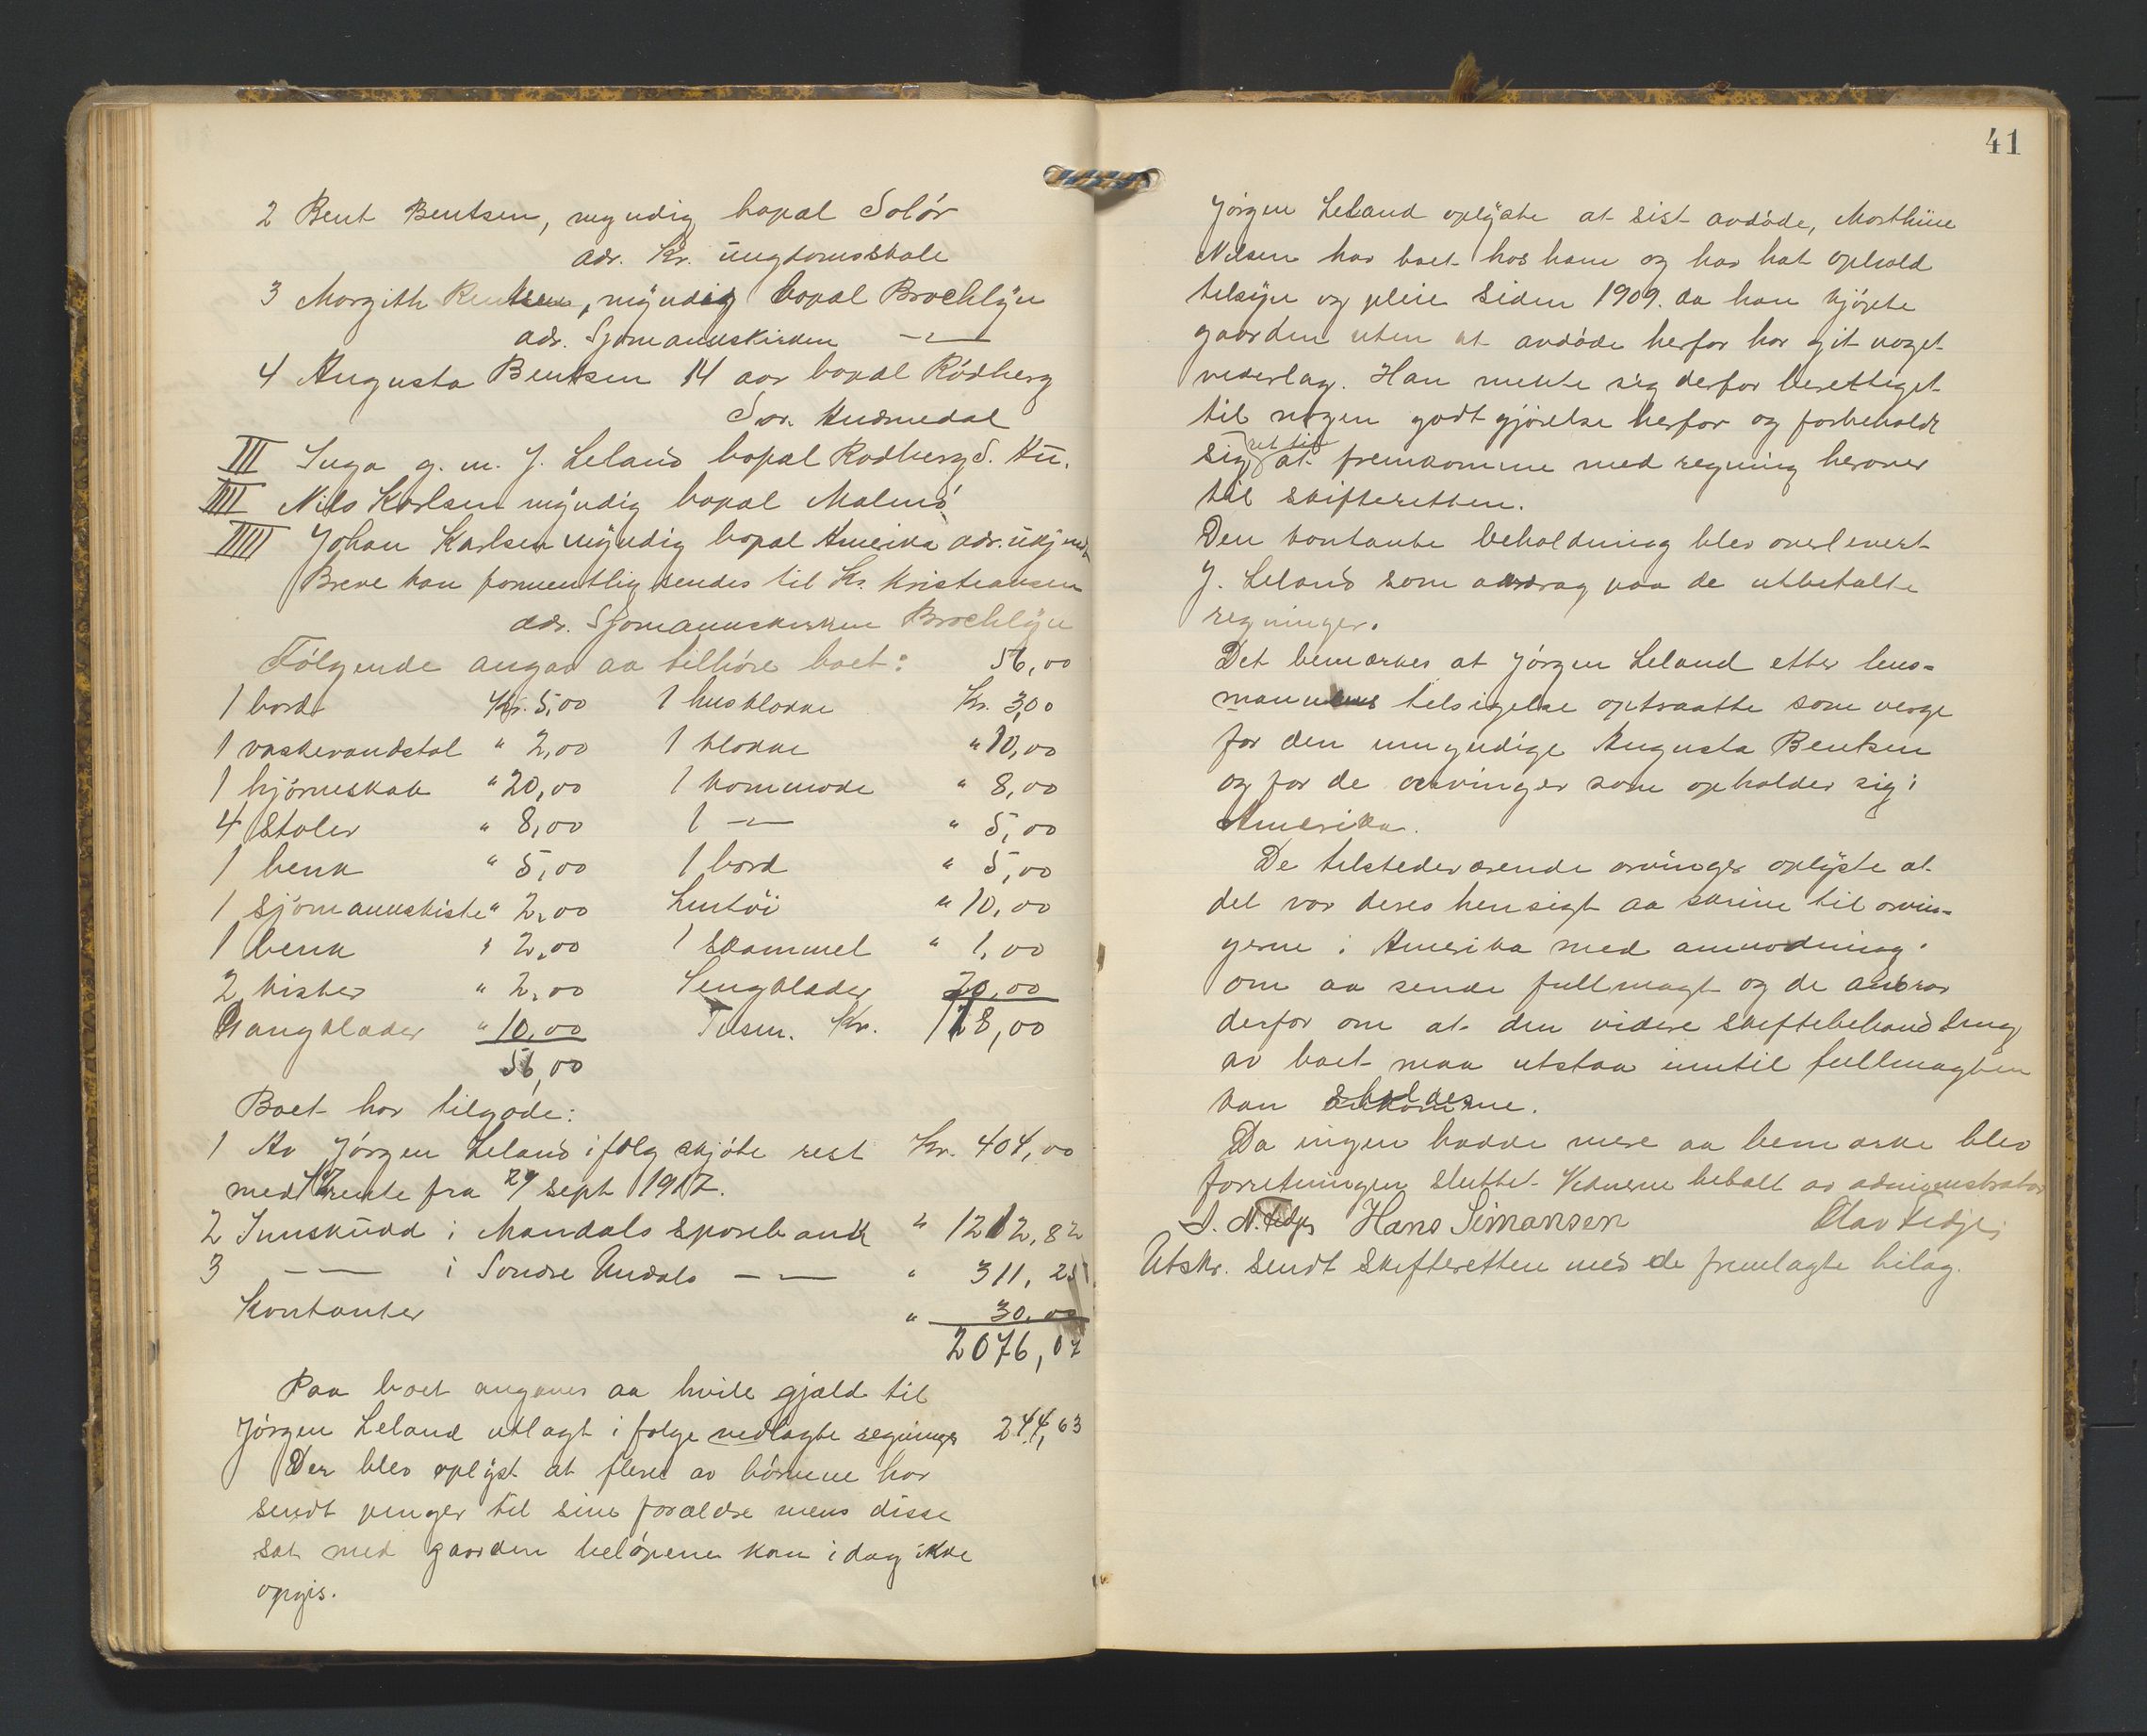 2 Bent Bentsen, myndig bopal Solör
adr. Kr. ungdomsskole
3 Margith Bentsen, myndig bopal Brochlyn
adr. Sjomannskirken —"—
4 Augusta Bentsen 14 aar bopal Rödberg
Sør. Audnedal
III Inga g. m. J. Leland bopal Rødberg S. Au.
IIII Nils Karlsen myndig bopal Malmö
IIIII Johan Karlsen myndig bopal Amerika adr. ukjendt
Breve kan formentlig sendes til Kr. Kristiansen
adr. Sjomannskirken Brochlyn
Fölgende angav aa tilhöre boet: 56,00
1 bord Kr. 5,00 1 husklokke Kr. 3,00
1 vaskevandstol " 2,00 1 klokke " 10,00
1 hjörneskab " 20,00 1 kommode " 8,00
4 Stoler " 8,00 1 —"— " 5,00
1 benk " 5,00 1 bord " 5,00
1 Sjömannskiste " 2,00 Lintöi " 10,00
1 benk " 2,00 1 Skammel " 1,00
2 kister " 2,00 Sengklæder 20,00
Gangklæder " 10,00 Tilsm. Kr. 118,00
56,00
Boet har tilgode:
1 Av Jörgen Leland i følg skjöte rest Kr. 404,00
med rente fra 29/ Sept 1917.
2 Innskudd i Mandals Sparebank " 1212,82
3 — — i Søndre Undals — — " 311,25
Kontanter " 30,00
2076,07
Paa boet angaves aa hvile gjæld til
Jörgen Leland utlagt i følge vedlagte regninger 244,63
Der blev oplyst at flere av börnene har
sendt penger til sine forældre mens disse
sat med gaarden belöpene kan idag ikke
opgis.
41
Jörgen Leland oplyste at sist avdöde, Marthine
Nilsen har boet hos ham og har hat ophold
tilsyn og pleie siden 1909. da han kjöpte
gaarden uten at avdöde herfor har git noget
vederlag. Han mente sig derfor berettiget
til nogen godtgjörelse herfor og forbeholdt
sig ret til at fremkomme med regning herover
til skifteretten.
Den kontante beholdning blev overlevert
J. Leland som avdrag paa de utbetalte
regninger.
Det bemærkes at Jörgen Leland etter lens-
mannens tilsigelse optraatte som verge
for den umyndige Augusta Bentsen
og for de arvinger som opholder sig i
Amerika.
De tilstedeværende arvinger oplyste at
det var deres hensigt aa skrive til arvin-
gerne i Amerika med anmodning
om aa sende fullmagt og de anbrar
derfor om at den videre skiftebehandling
av boet maa utstaa inntil fullmagten
kan
Da ingen hadde mere aa bemærke blev
forretningen sluttet. Vidnerne betalt av administrator
S. N. Fedje Hans Simonsen Olav Fedje
Utskr. sendt Skifteretten med de fremlagte bilag.